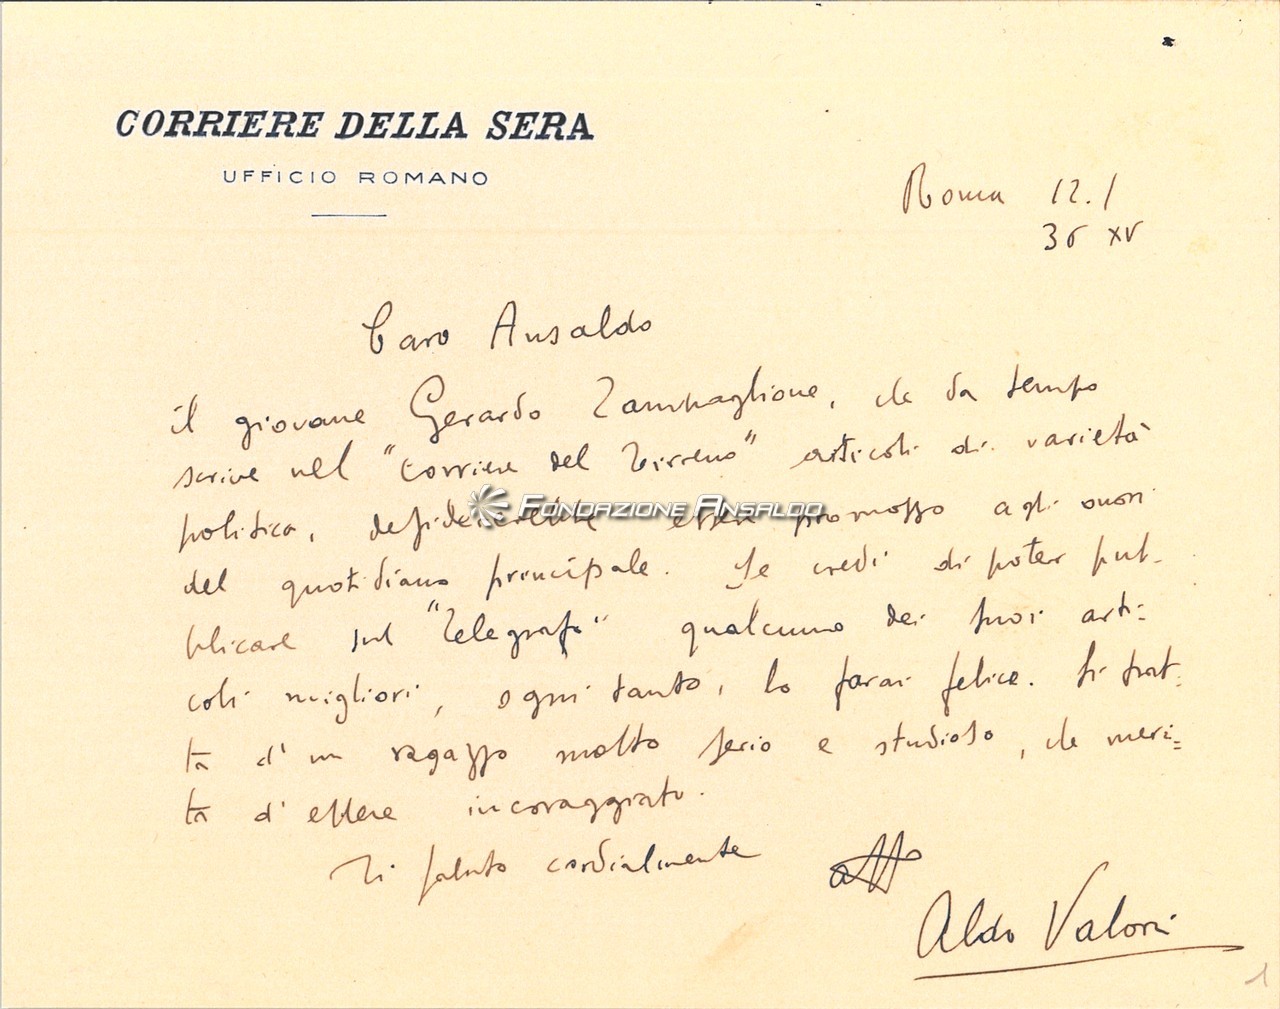 CORRIERE DELLA SERA
UFFICIO ROMANO
Roma 12.1
36 XV
Caro Ansaldo
il giovane Gerardo Zampaglione, che da tempo
scrive nel "Corriere del Tirreno" articoli di varietà
politica, desidererebbe essere promosso agli onori
FONDAZIONE ANSALDO
del quotidiano principale. Se credi di poter pub-
blicare sul "Telegrafo" qualcuno dei suoi arti-
coli migliori, ogni tanto, lo farai felice. Si trat-
ta d'un ragazzo molto serio e studioso, che meri=
ta d'essere incoraggiato.
Ti saluto cordialmente aff
Aldo Valori
1